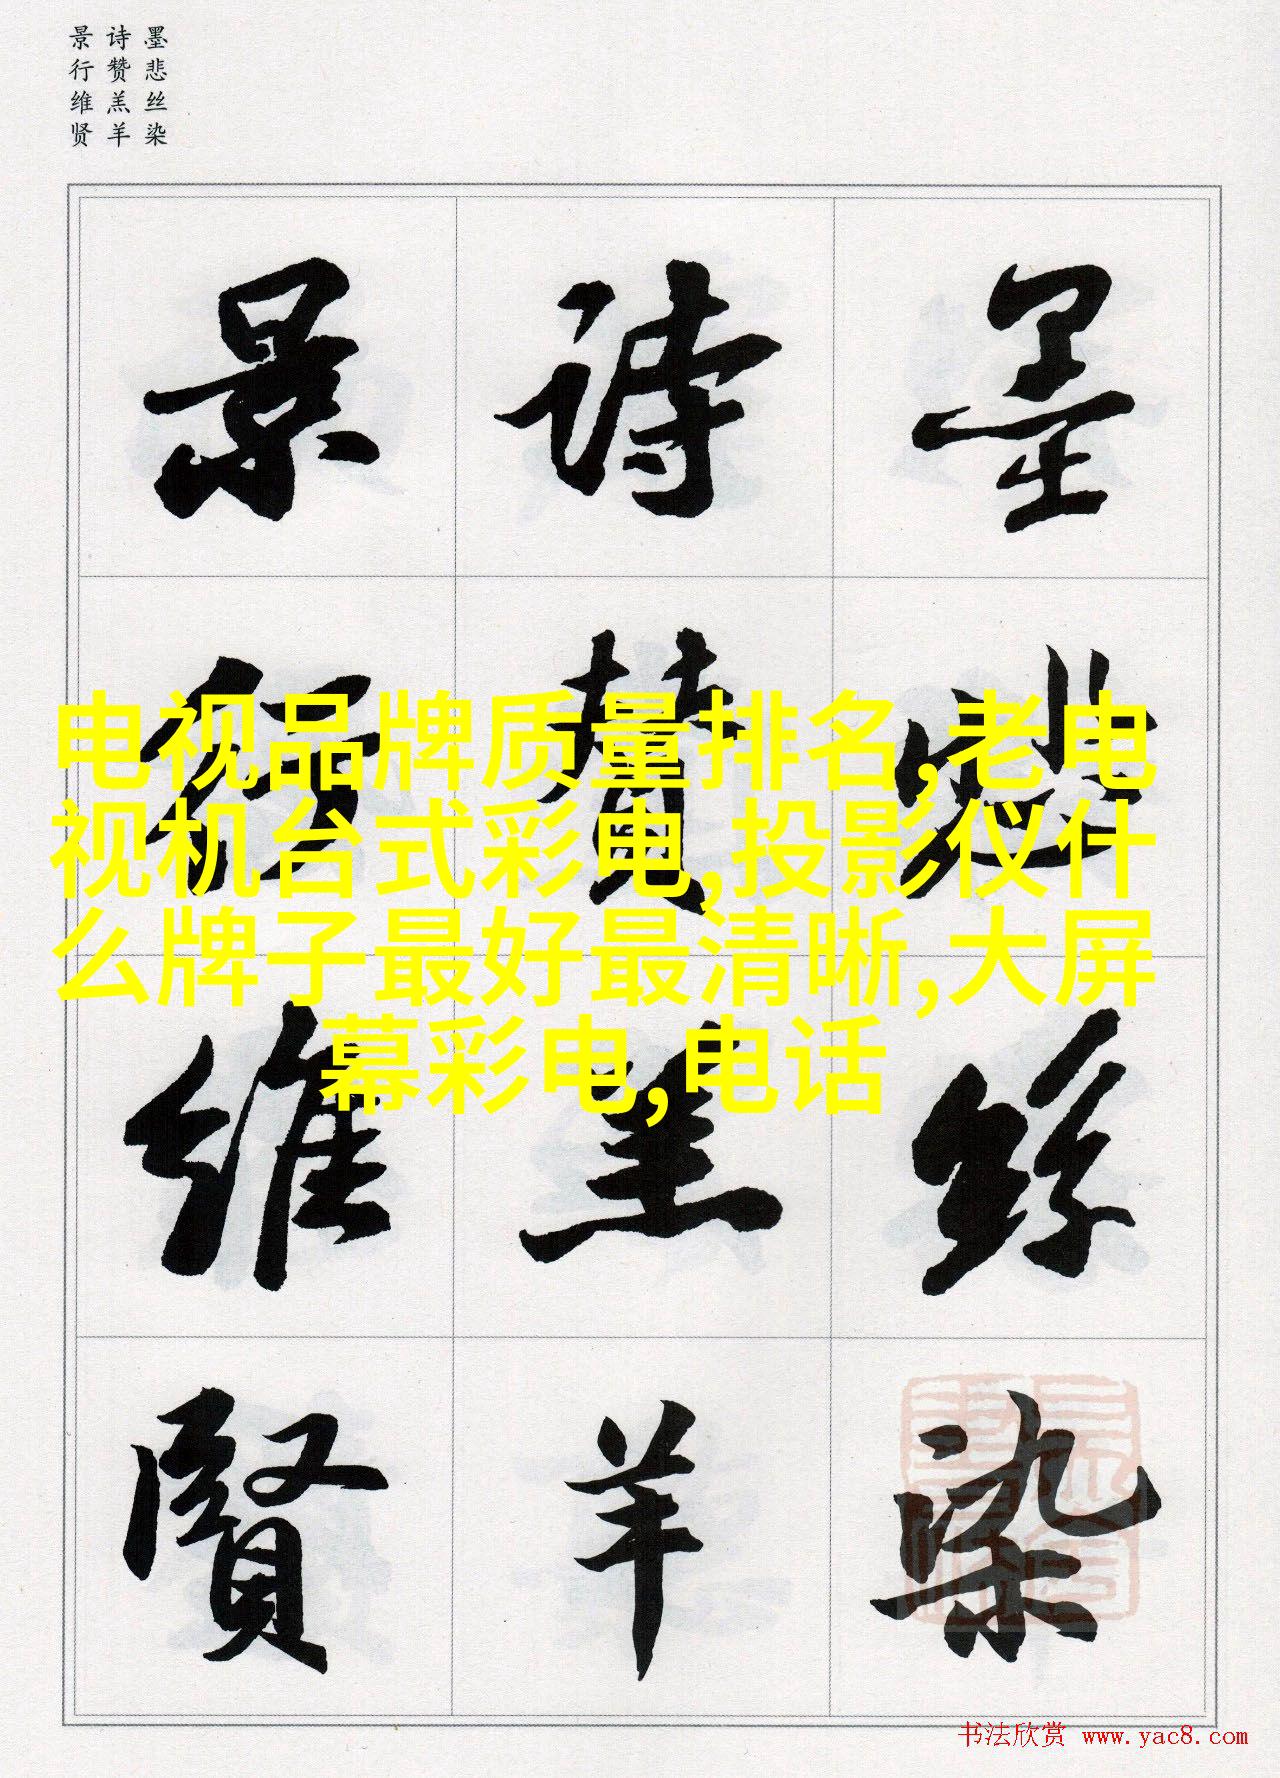 墨悲丝染
诗赞羔羊
景行维贤
墨悲絲染
詩贊羔羊
景行維賢
电视品牌质量排名,老电
视机台式彩电,投影仪什
么牌子最好最清晰,大屏
幕彩电,电话
书法欣赏 www.yac8.com